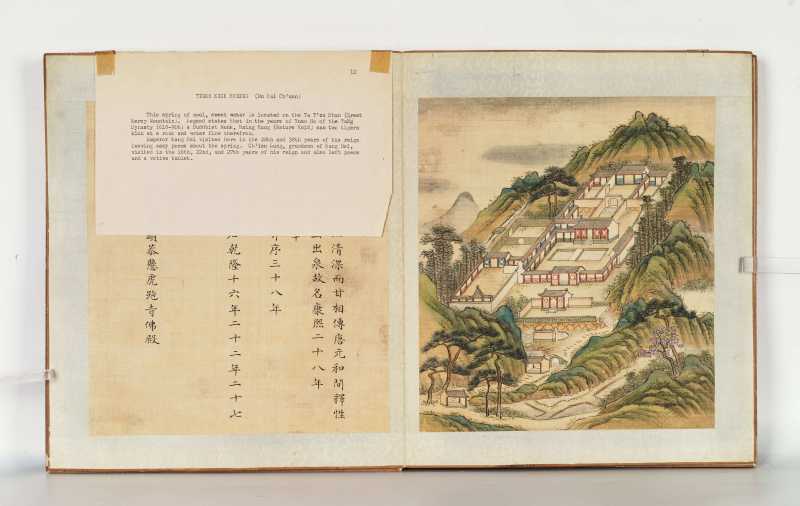 12
TIGER KICK SPRING
This spring of cool, sweet water is located on the Ta T'zu Shan (Great
Mercy Mountain). Legend states that in the years of Yuan Ho of the Tang
Dynasty 618-906) a Buddhist Monk, Hsing Kung (Nature Void) saw two tigers
kick at a rock and water flow therefrom.
Emperor Kang Hsi visited here in the 28th and 38th years of his reign
leaving many poems about the spring. Ch'ien Lung, grandson of Kang Hsi,
visited in the 16th, 22nd, and 27th years of his reign and also left poems
and a votive tablet.
清而甘相傳唐元和間釋性
出泉故名康熙二十八年
序三十八年
乾隆十六年二十二年二十七
額恭懸虎跑寺佛殿